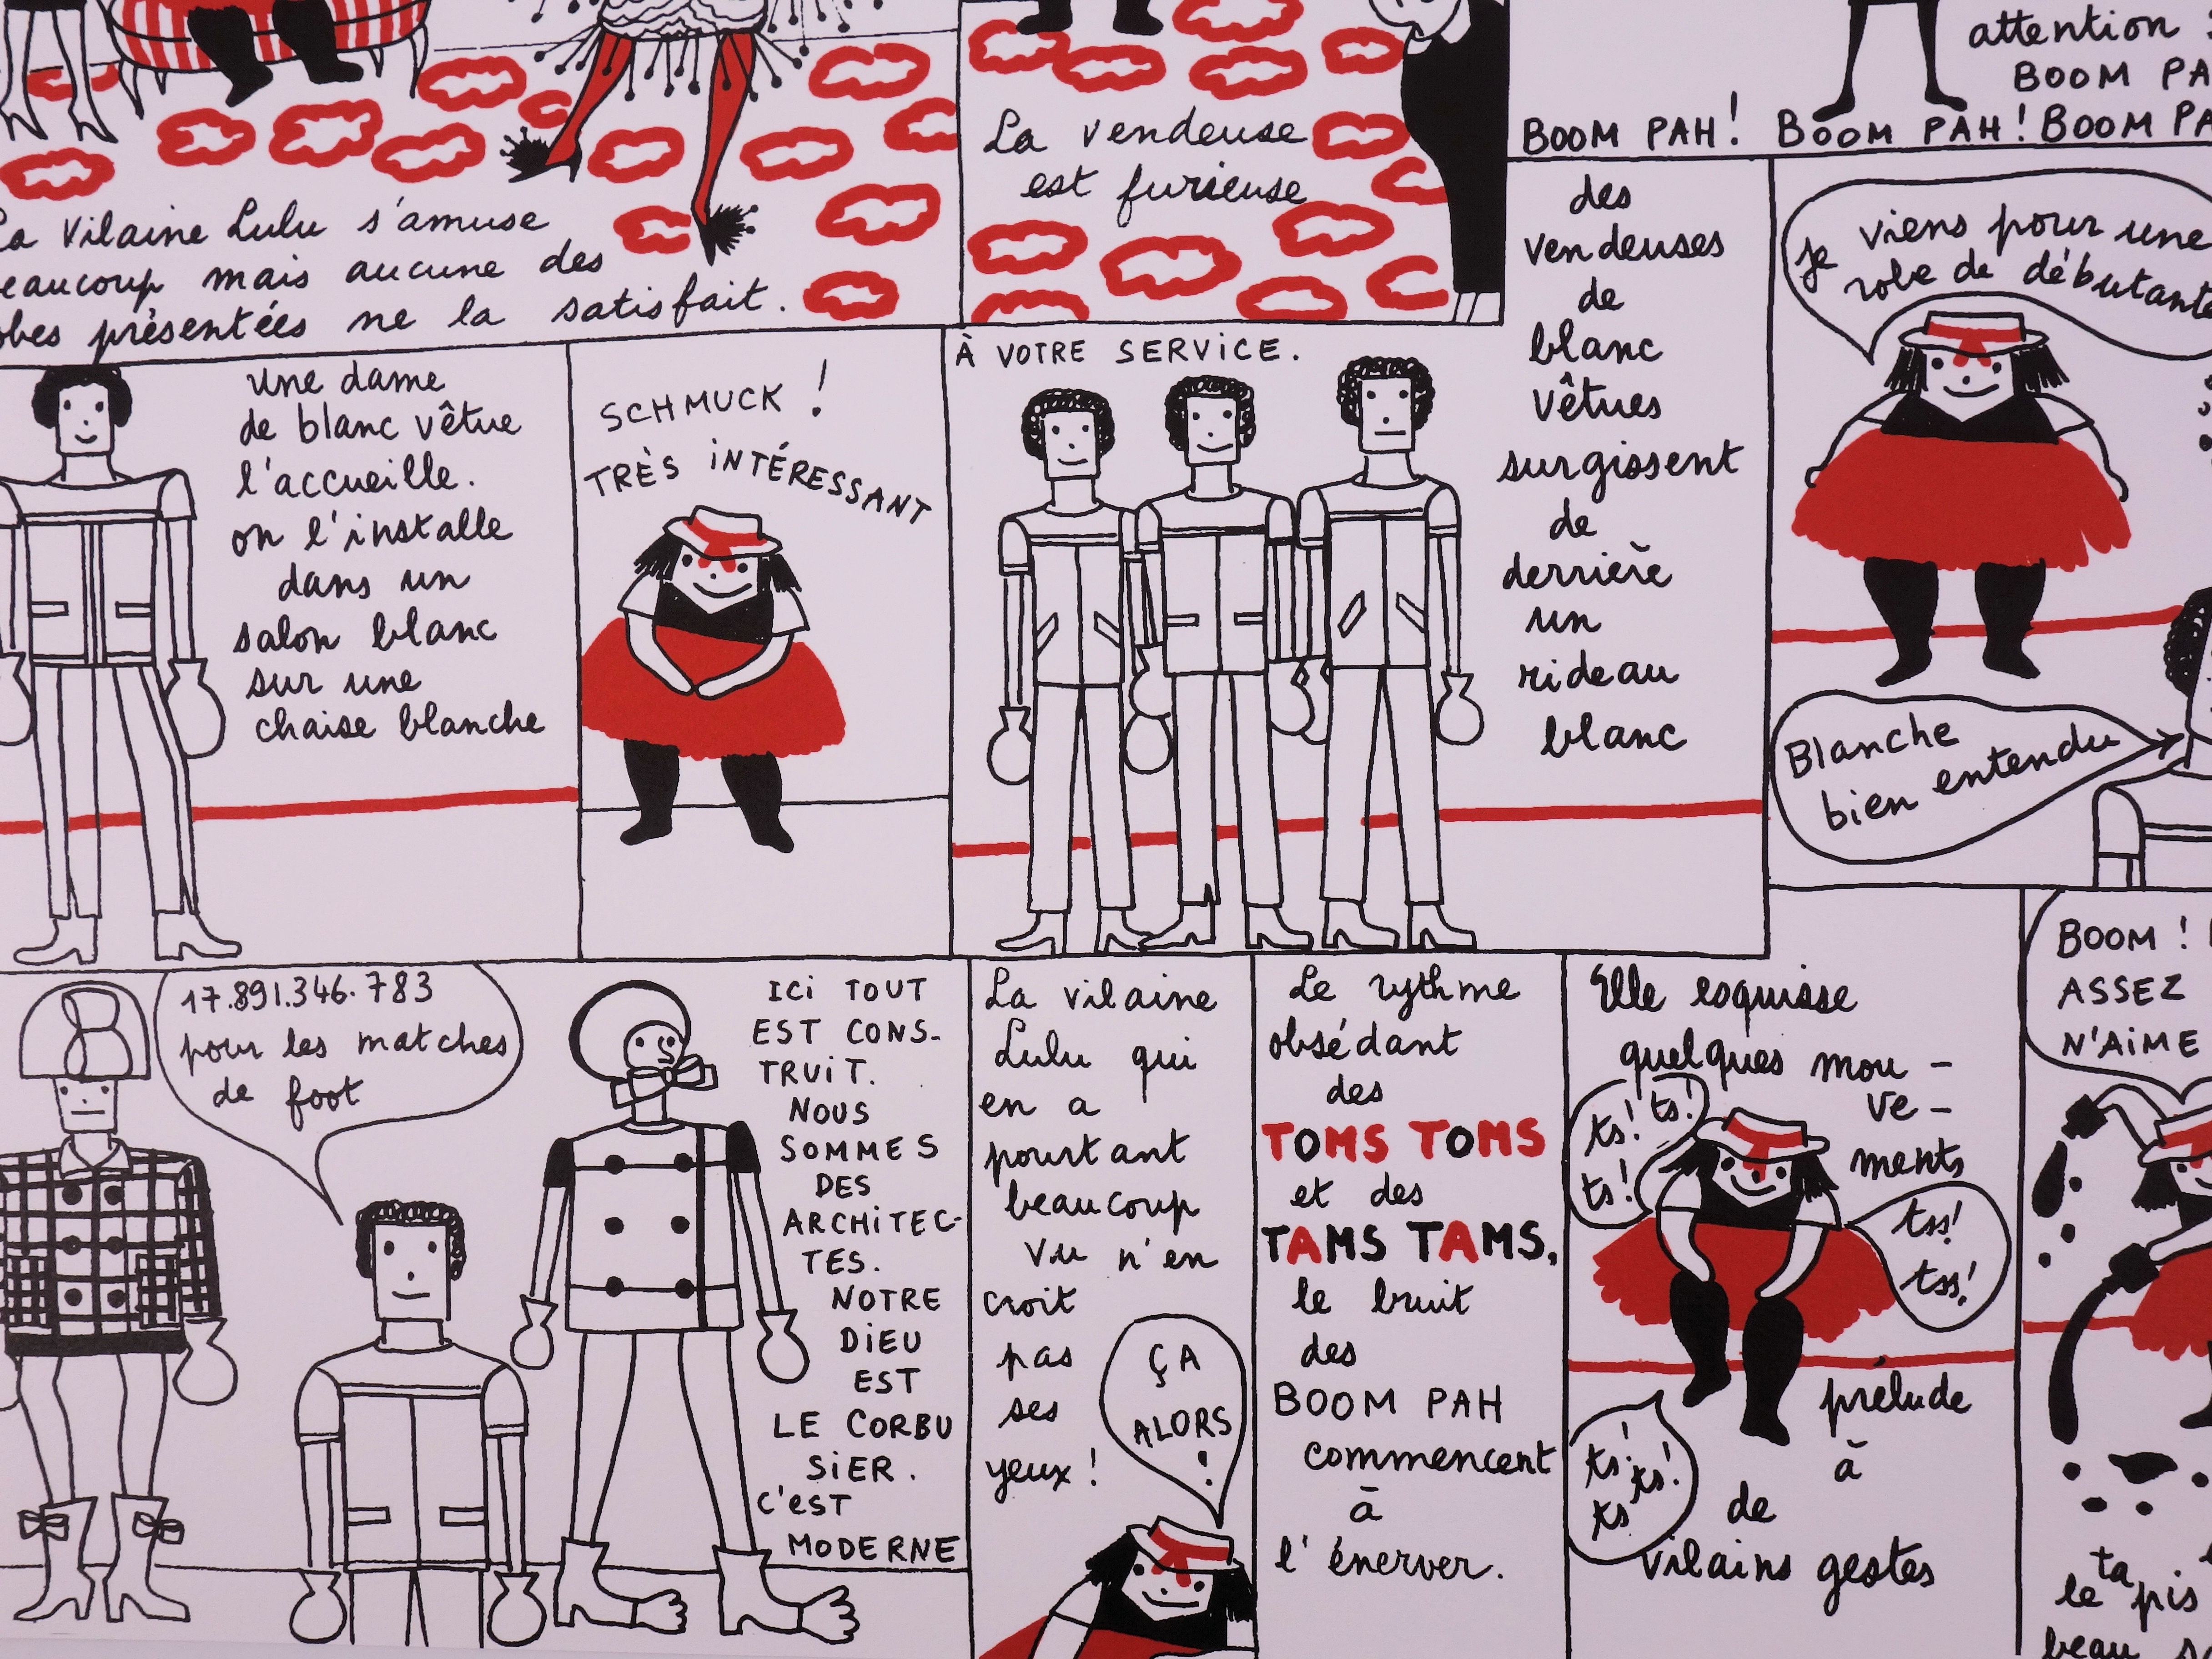 La Vilaine Lulu s'amuse
beaucoup mais aucune des
robes présentées ne la satisfait.
La vendeuse
est furieuse
attention
BOOM PA
BOOM PAH! BOOM PAH! BOOM PA
une dame
de blanc vêtue
l'accueille.
on l'installe
dans un
salon blanc
sur une
chaise blanche
SCHMUCK !
TRÈS INTÉRESSANT
À VOTRE SERVICE.
des
vendeuses
de
blanc
vêtues
surgissent
de
derrière
un
rideau
blanc
je viens pour une
robe de débutante
Blanche
bien entendu
17.891.346.783
pour les matches
de foot
ICI TOUT
EST CONS-
TRUIT.
NOUS
SOMMES
DES
ARCHITEC-
TES.
NOTRE
DIEU
EST
LE CORBU
SIER.
C'EST
MODERNE
La vilaine
Lulu qui
en a
pourtant
beaucoup
vu n'en
croit
pas
ses
yeux !
ÇA
ALORS
!
Le rythme
obsédant
des
TOMS TOMS
et des
TAMS TAMS,
le bruit
des
BOOM PAH
commencent
à
l'énerver.
Elle esquisse
quelques mou-
ve-
ments
ts! ts!
ts!
tss!
tss!
prélude
à
de
vilains gestes
ts! ts!
ts
BOOM !
ASSEZ
N'AIME
ta
le pis
beau